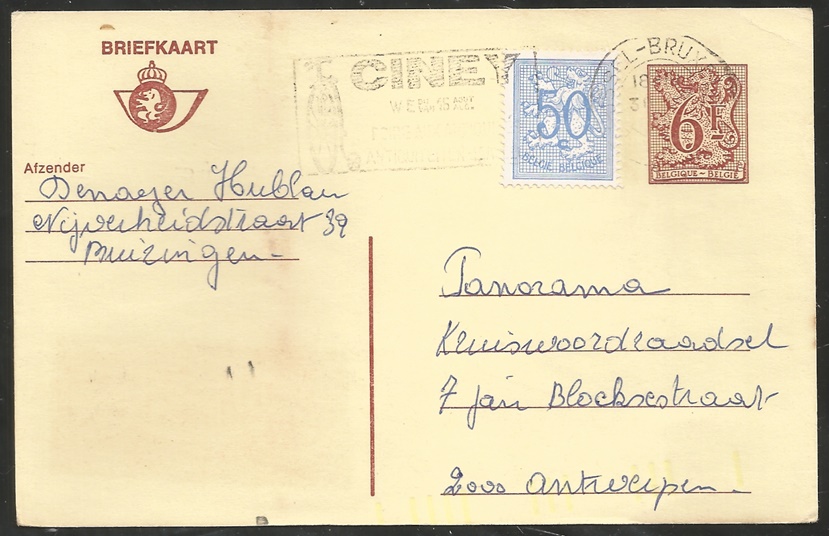 BRIEFKAART
CINEY
W.E.
50
BELGIE BELGIQUE
EL-BRUX
18
6F
BELGIQUE - BELGIË
Afzender
Denaeyer Hublau
Nijverheidstraat 39
Buizingen -
Panorama
Kruiswoordraadsel
7 Jan Blockxstraat
2000 Antwerpen.